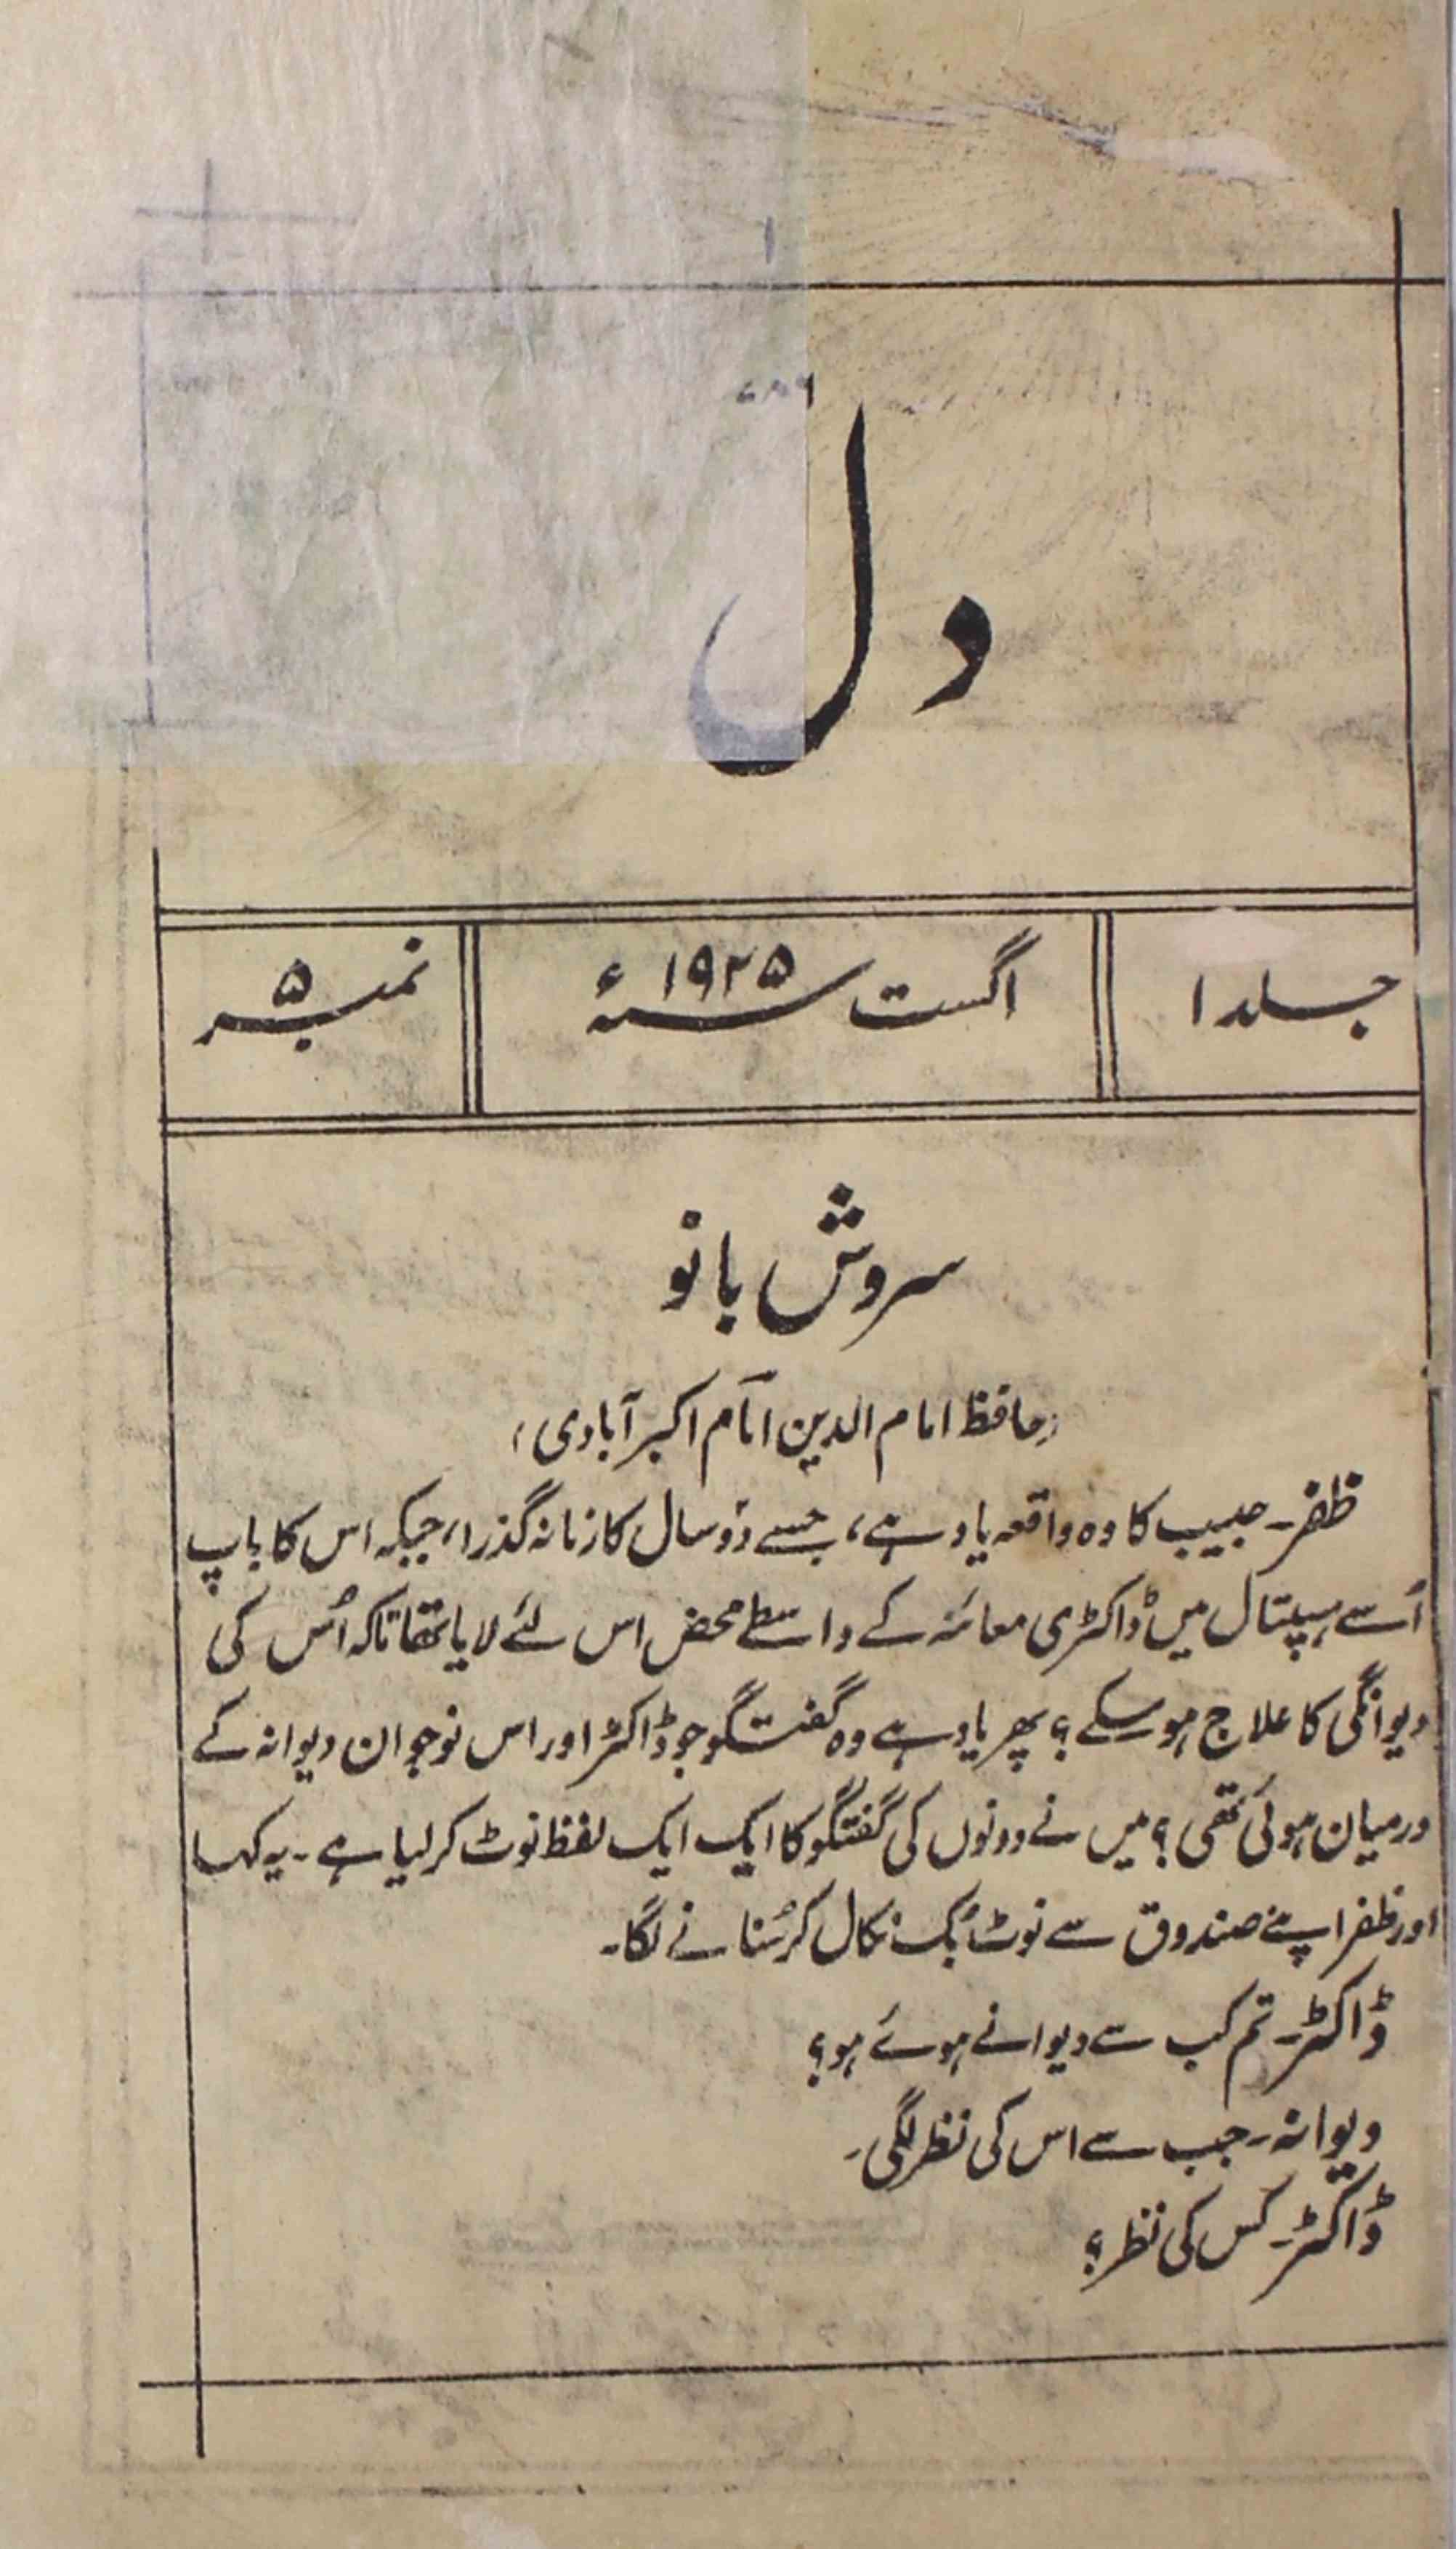 ۷۸۶
دل
جلد ۱
اگست سنہ ۱۹۲۵ء
نمبر ۵
سروش بانو
(حافظ امام الدین امام اکبر آبادی)
ظفر۔ حبیب کا وہ واقعہ یاد ہے، جسے دو سال کا زمانہ گذرا، جبکہ اس کا باپ
اُسے ہسپتال میں ڈاکٹری معائنہ کے واسطے محض اس لئے لایا تھا تاکہ اُس کی
دیوانگی کا علاج ہو سکے؟ پھر یاد ہے وہ گفتگو جو ڈاکٹر اور اس نوجوان دیوانہ کے
درمیان ہوئی تھی؟ میں نے دونوں کی گفتگو کا ایک ایک لفظ نوٹ کر لیا ہے۔ یہ کہا
اور ظفر اپنے صندوق سے نوٹ بک نکال کر سُنانے لگا۔
ڈاکٹر۔ تم کب سے دیوانے ہوئے ہو؟
دیوانہ۔ جب سے اس کی نظر لگی۔
ڈاکٹر۔ کس کی نظر؟